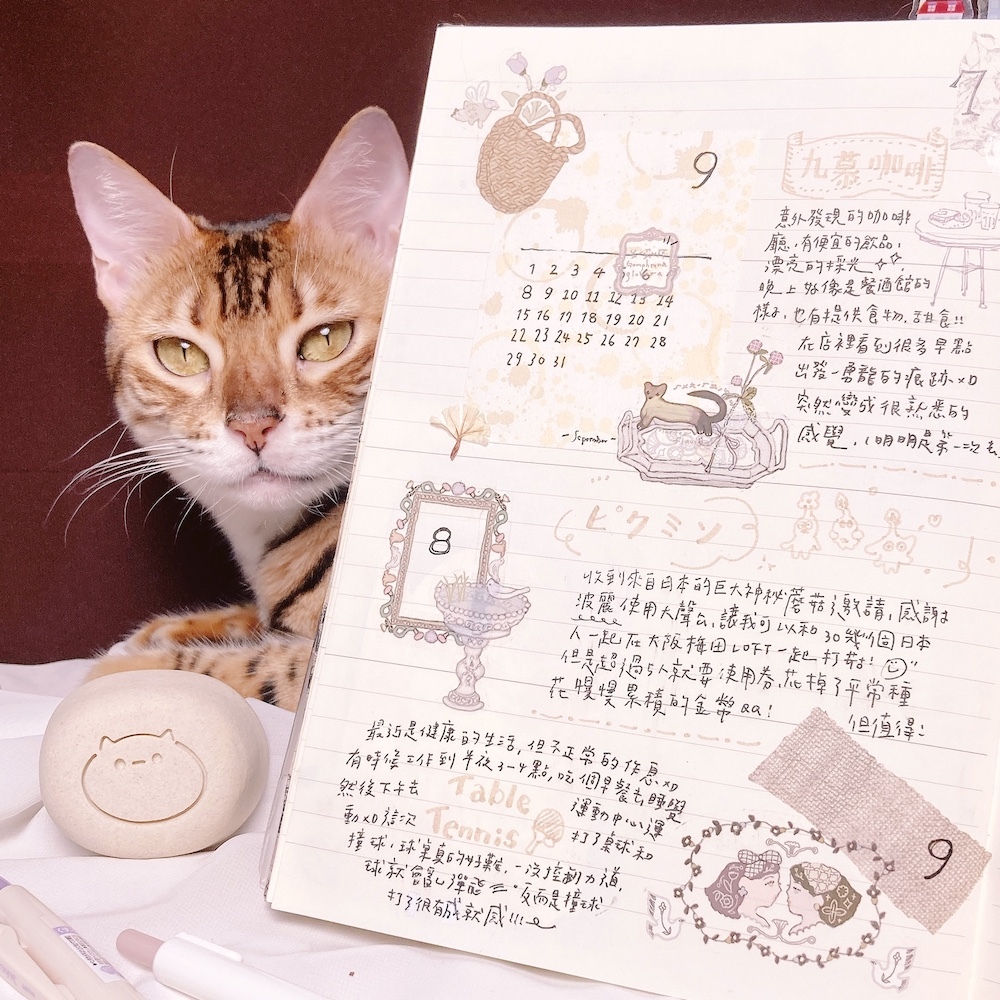 7
九慕咖啡
意外發現的咖啡
廳,有便宜的飲品,
漂亮的採光
晚上好像是餐酒館的
樣子,也有提供食物,甜食!!
在店裡看到很多早點
出發-勇龍的痕跡xD
突然變成很熟悉的
感覺,(明明是第一次去
9
1 2 3 4 6
8 9 10 11 12 13 14
15 16 17 18 19 20 21
22 23 24 25 26 27 28
29 30 31
-September-
8
ピクミン
收到來自日本的巨大神秘蘑菇邀請,感謝
波麗使用大聲公,讓我可以和30幾個日本
人一起在大阪梅田LOFT一起打菇!
但是超過5人就要使用券,花掉了平常種
花慢慢累積的金幣QQ!
但值得!
最近是健康的生活,但不正常的作息xD
有時後工作到半夜3-4點,吃個早餐去睡覺
然後下午去
運動中心運
動xD這次
打了桌球和
Table
Tennis
撞球,球桌真的好難,一沒控制力道,
球就會亂彈
反而是撞球
打了很有成就感!!!
9